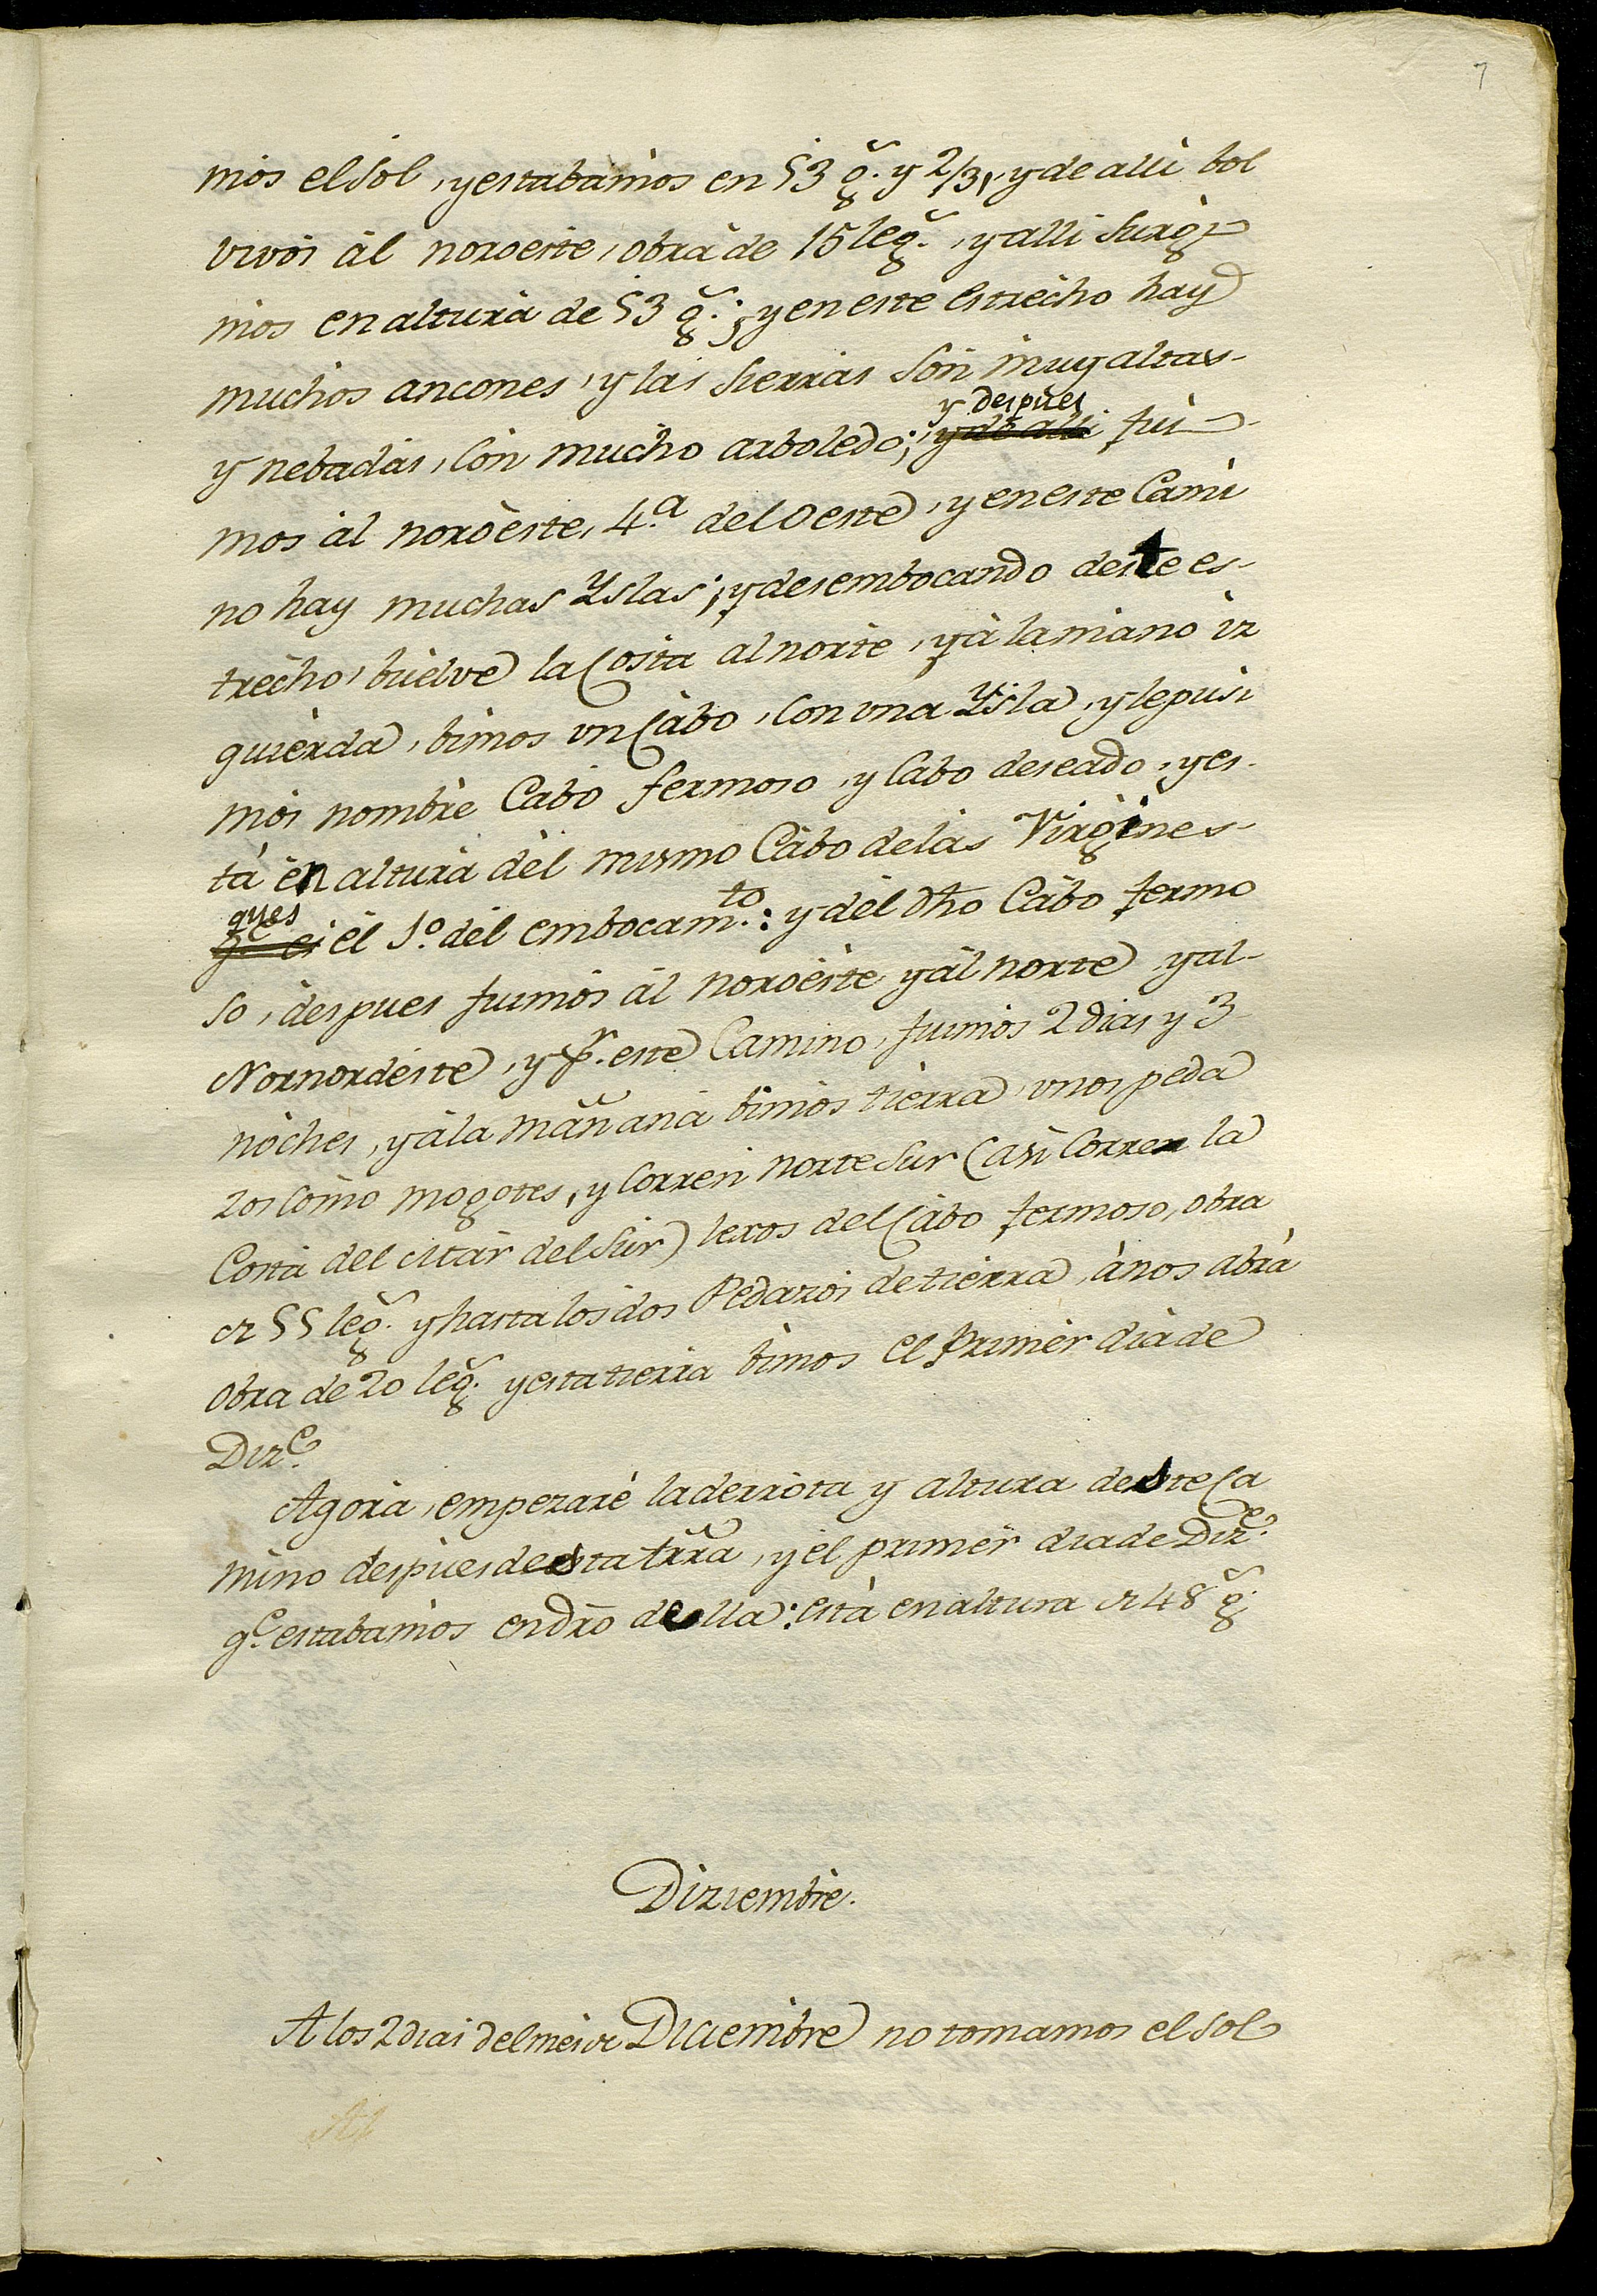 7
mos el Sol, y estabamos en 53 g.˜ y 2/3, y de alli bol
vivos àl noroeste, obra de 15 leg.˜, y alli Surgi
mos en altura de 53 g.˜; y en este estrecho hay
muchos ancones, y las Sierras Son muy altas
y nebadas, Con mucho arboledo; y despues fui
mos àl noroeste, 4.ª del Oeste, y en este Cami
no hay muchas Yslas; y desembocando deste es-
trecho, buelve la Costa al norte, y à la mano iz
quierda, bimos vn Cabo, Con vna Ysla, y le pusi
mos nombre Cabo fermoso, y Cabo deseado, y es-
tà en altura del mismo Cabo de las Virgines
qyes el 1º. del embocam.to: y del dho Cabo fermo
so, despues fuimos àl noroeste y àl norte y al
Nornordeste, y pr. este Camino, fuimos 2 dias y 3
noches, y à la mañana bimos tierra, vnos peda
zos Como mogotes, y Corren norte Sur (asi Corren la
Costa del Mar del Sur) lexos del Cabo fermoso, obra
de 55 leg.˜ y hasta los dos Pedazos de tierra, à nos abrà
obra de 20 leg.˜ y esta tierra bimos el primer dia de
Diz.e
Agora, empezarè la derrota y altura deste Ca
mino despues desta trra, y el primer dia de Diz.e
q.e estabamos en dro della: està en altura de 48 g.˜
Diziembre.
A los 2 dias del mes de Diciembre no tomamos el Sol